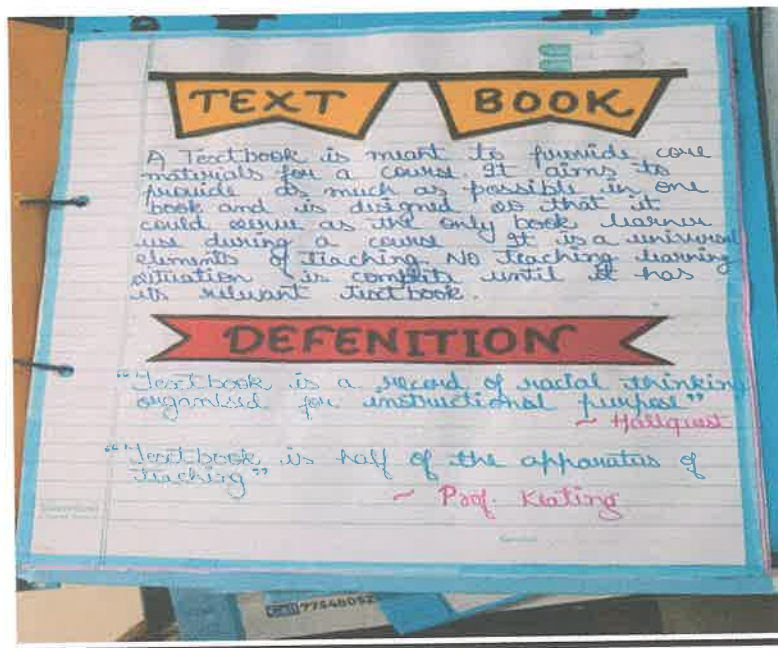 TEXT BOOK
A Textbook is meant to provide core
materials for a course. It aims to
provide as much as possible in one
book and is designed so that it
could serve as the only book learner
use during a course. It is a universal
elements of teaching. No teaching learning
situation is complete until it has
its relevant textbook.
DEFENITION
"Textbook is a record of racial thinking
organised for instructional purpose"
~ Hallquest
"Textbook is half of the apparatus of
teaching"
~ Prof. Keating